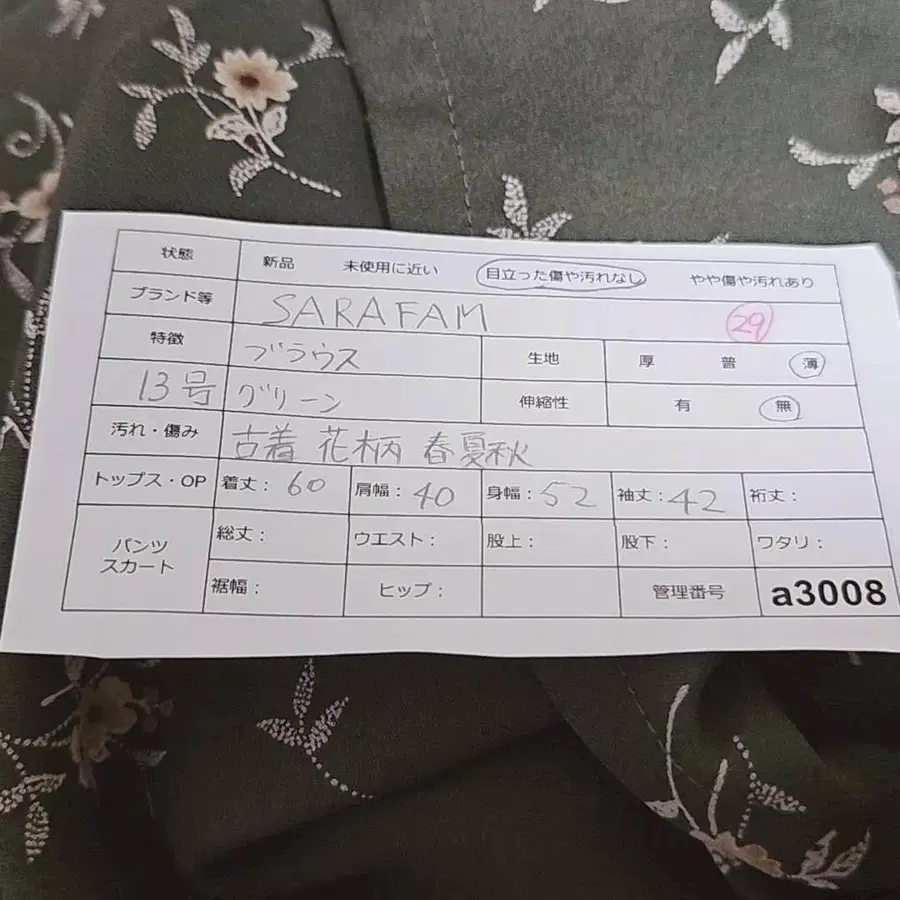 状態 新品 未使用に近い 目立った傷や汚れなし やや傷や汚れあり
ブランド等 SARAFAM 29
特徴 ブラウス 生地 厚 普 薄
13号 グリーン 伸縮性 有 無
汚れ・傷み 古着 花柄 春夏秋
トップス・OP 着丈: 60 肩幅: 40 身幅: 52 袖丈: 42 裄丈:
パンツ スカート 総丈: ウエスト: 股上: 股下: ワタリ:
裾幅: ヒップ: 管理番号 a3008